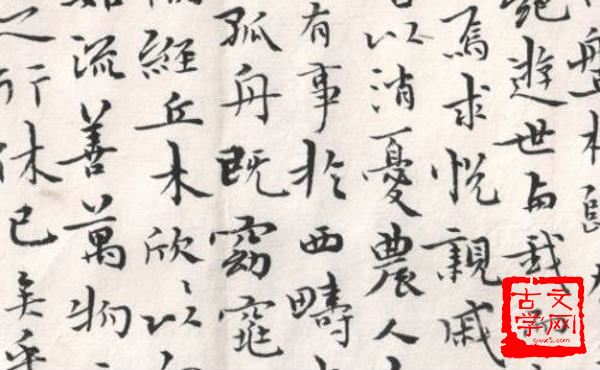 盤桓
遊世与我
焉求悅親戚
以消憂農人
有事於西疇
孤舟既窈窕
經丘木欣々以
流善萬物
之行休已矣乎
古文学网
gwx5.com